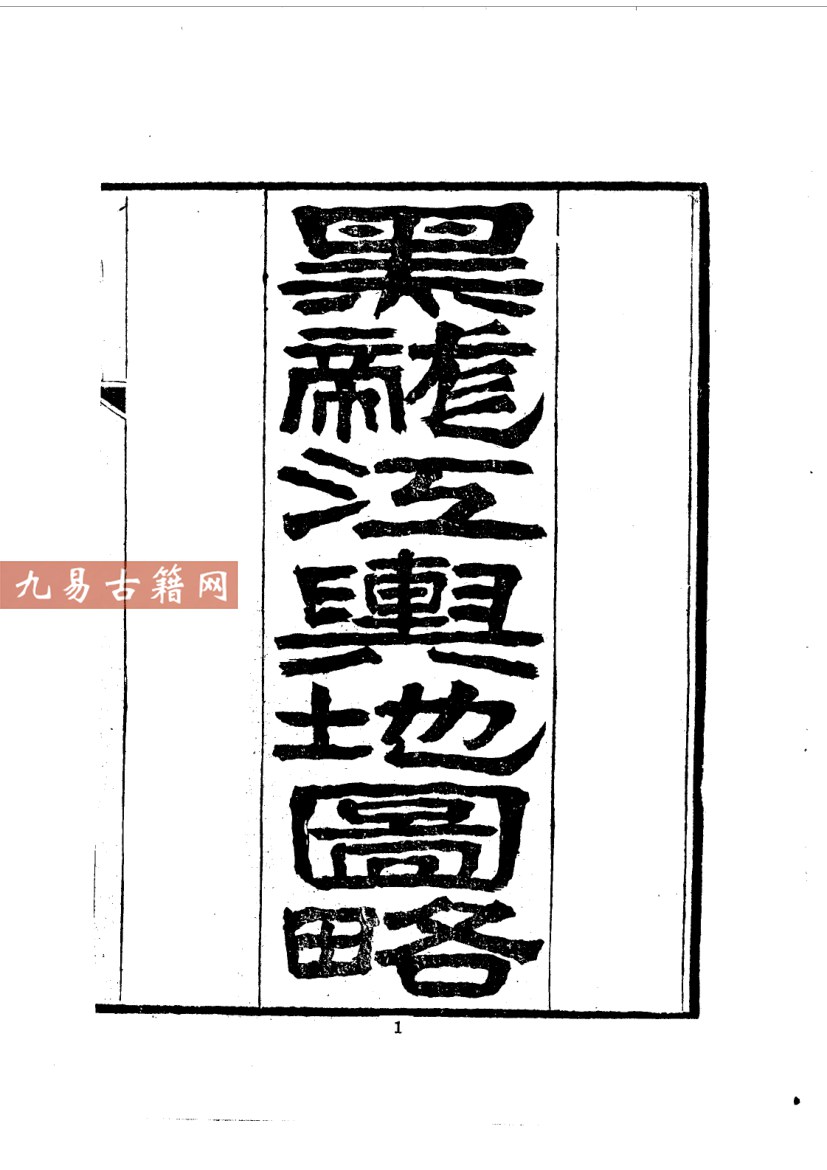 黑龍江輿地圖略
九易古籍网
1